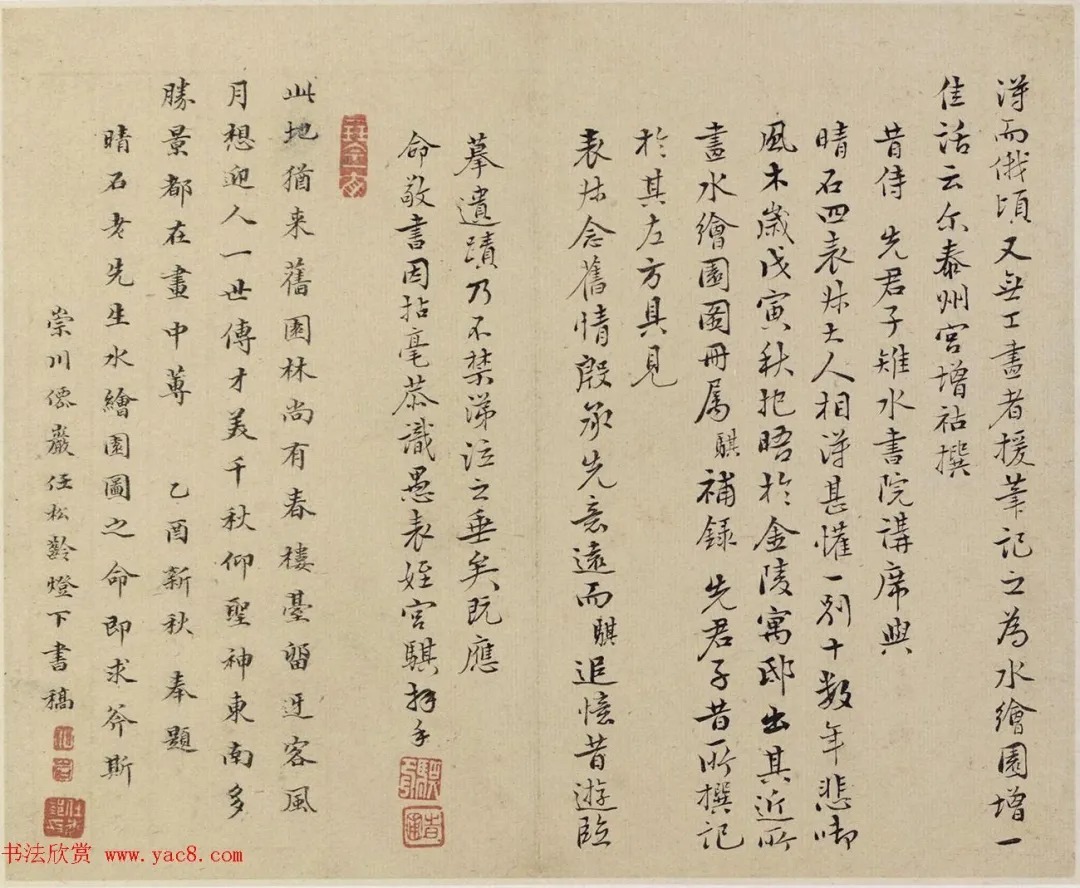 淂而俄頃又無工畫者援筆記之為水繪園增一
佳話云尔泰州宮增祜撰
昔侍先君子雉水書院講席與
晴石四表叔大人相淂甚懽一别十數年悲啣
風木歲戊寅秋把晤於金陵寓邸出其近所
畫水繪園圖冊属騏補録先君子昔所撰記
於其左方具見
表叔念舊情殷承先意遠而騏追憶昔遊臨
摹遺蹟乃不禁涕泣之垂矣既應
命敬書因拈毫恭識愚表姪宮騏拜手
此地猶来舊園林尚有春樓臺留迓客風
月想迎人一世傳才美千秋仰聖神東南多
勝景都在畫中蓴乙酉新秋奉題
晴石老先生水繪園圖之命即求斧斯
崇川儒巖任松齡燈下書稿
书法欣赏 www.yac8.com